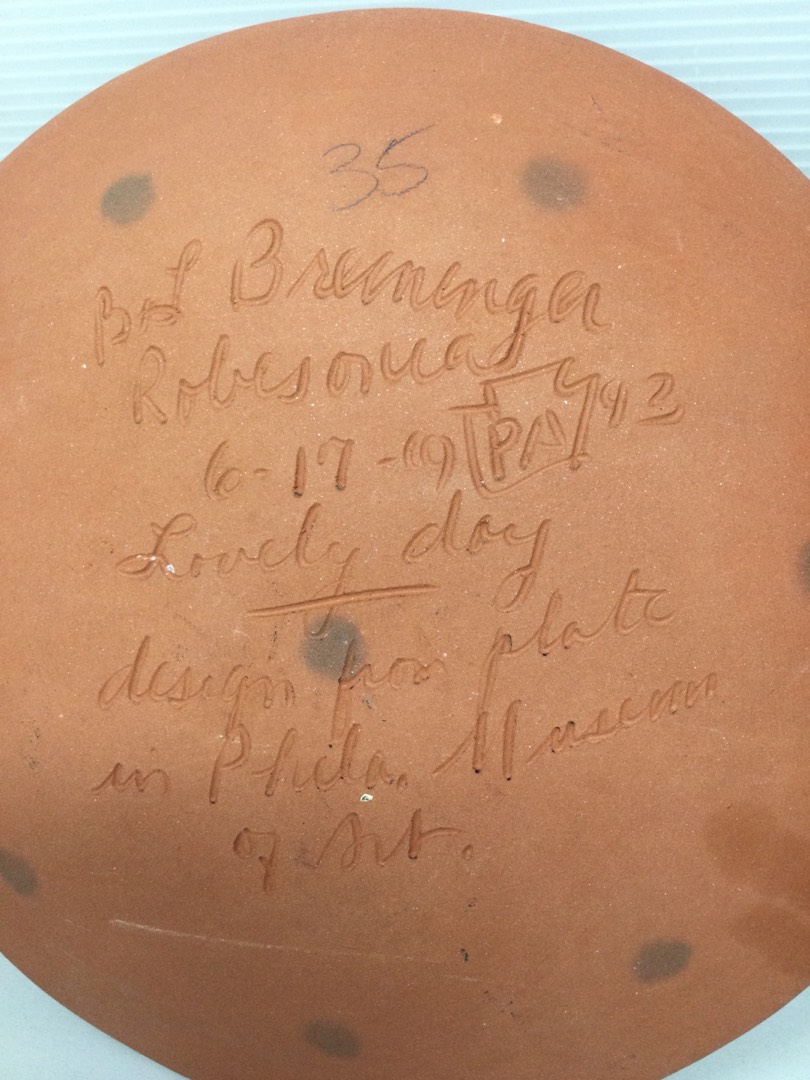 35
B&L Breininger
Robesonia
PA
6-17-1993
Lovely day
design from plate
in Phila. Museum
of Art.